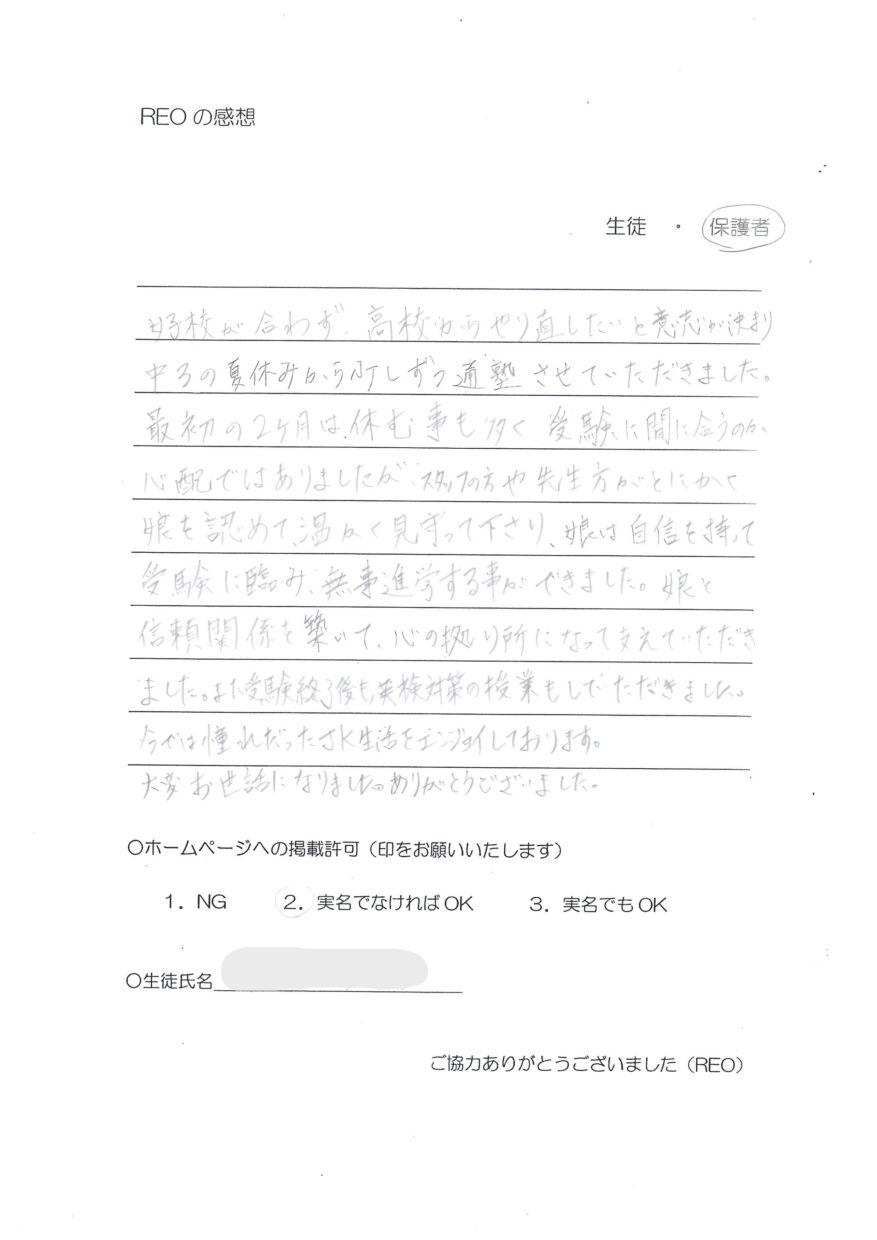 REOの感想
生徒 ・ 保護者
校が合わず、高校からやり直したいと意志が決まり
中3の夏休みから少しずつ通塾させていただきました。
最初の2ヶ月は、休む事も多く 受験に間に合うのか、
心配ではありましたが、スタッフの方や先生方がとにかく
娘を認めて、温かく見守って下さり、娘は自信を持って
受験に臨み、無事進学する事ができました。娘と
信頼関係を築いて、心の拠り所になって支えていただき
ました。また受験終了後も、英検対策の授業もしていただきました。
今では憧れだったJK生活をエンジョイしております。
大変お世話になりました。ありがとうございました。
〇ホームページへの掲載許可（印をお願いいたします）
1．NG 2．実名でなければOK 3．実名でもOK
〇生徒氏名
ご協力ありがとうございました（REO）